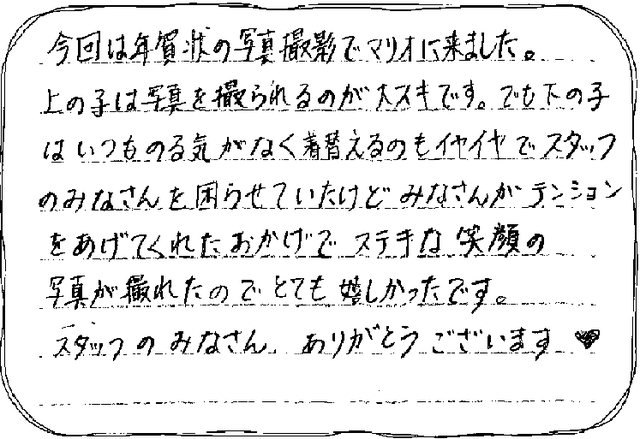 今回は年賀状の写真撮影でマリオに来ました。
上の子は写真を撮られるのが大スキです。でも下の子
はいつものる気がなく着替えるのもイヤイヤでスタッフ
のみなさんを困らせていたけどみなさんがテンション
をあげてくれたおかげでステキな笑顔の
写真が撮れたのでとても嬉しかったです。
スタッフのみなさん、ありがとうございます♥